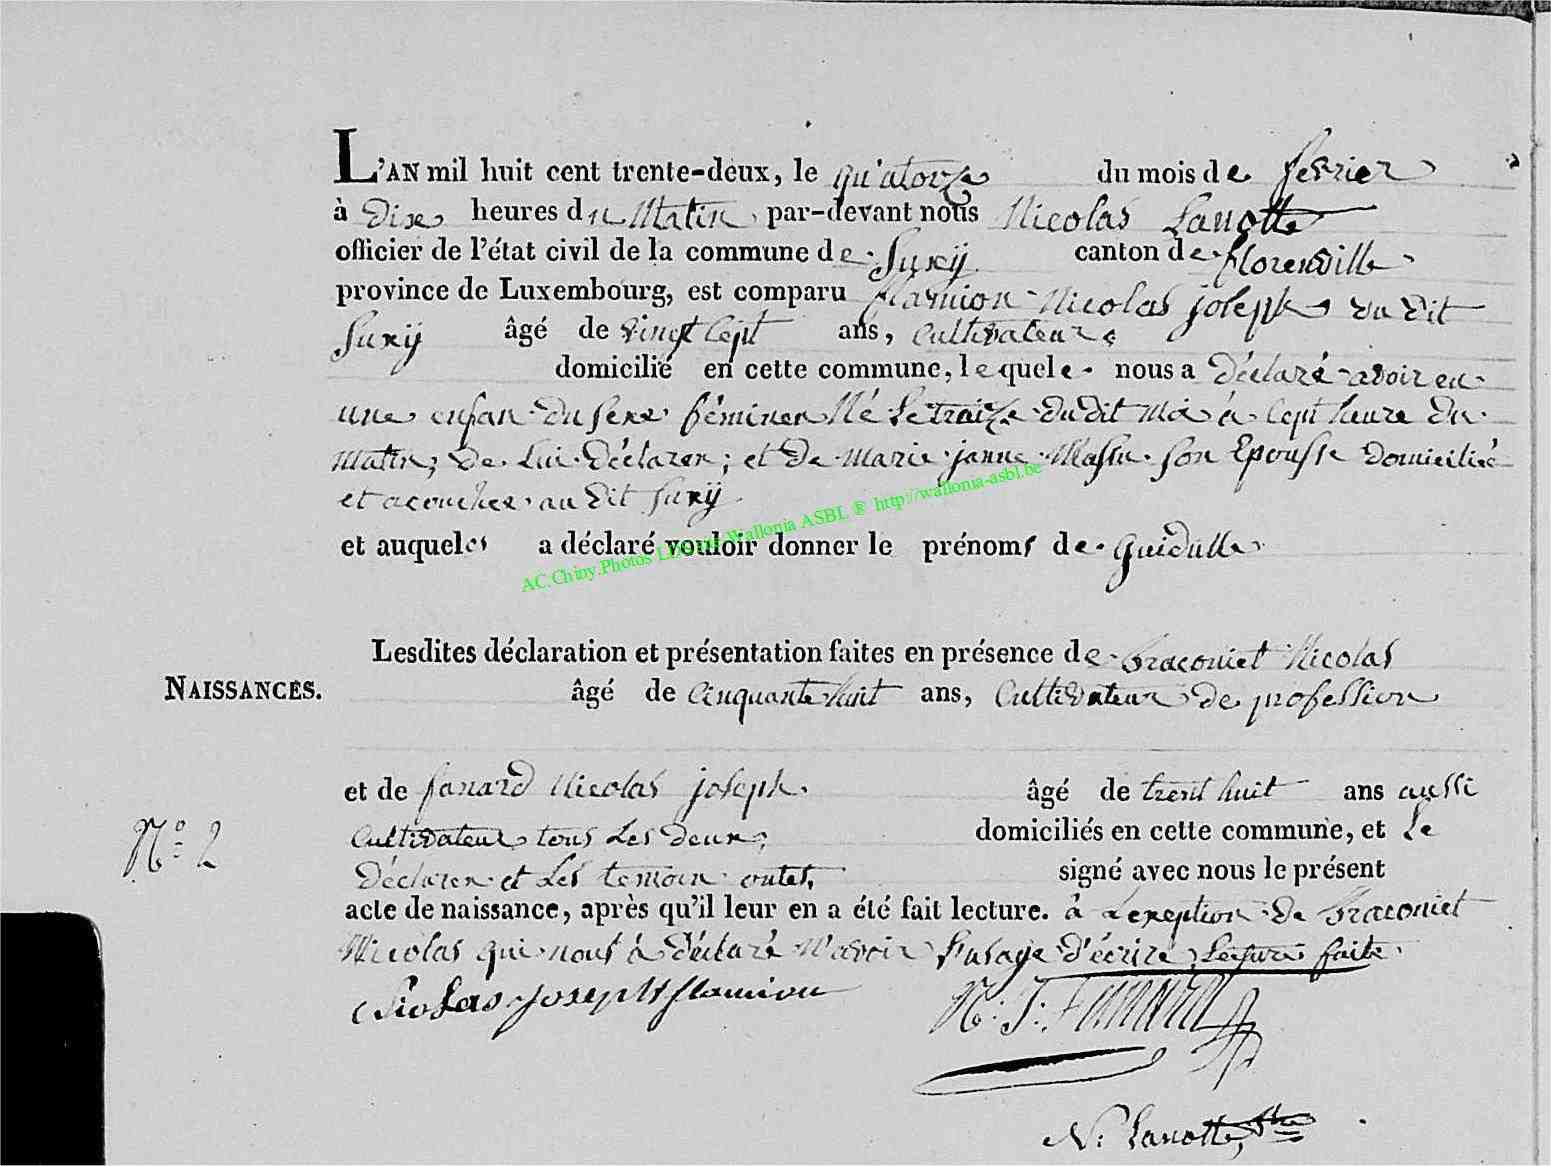 L'AN mil huit cent trente-deux, le qu'atorze du mois de fevrier
à Dix heures du Matin par-devant nous Nicolas Lanotte
officier de l'état civil de la commune de Suxÿ canton de florenville
province de Luxembourg, est comparu flamion Nicolas joseph du dit
Suxÿ âgé de vingt sept ans, cultivateur
domicilié en cette commune, lequel nous a déclaré avoir eu
une enfan du sexe féminen Né Le traize du dit moi à sept heure du
matin; de Lui déclaren; et de marie janne Massu son Epousse domiciliée
et acouchez au dit Suxÿ
AC.Chiny.Photos Wallonia ASBL ® http://wallonia-asbl.be
et auquel a déclaré vouloir donner le prénoms de Guidulle
Lesdites déclaration et présentation faites en présence de Braconiet Nicolas
NAISSANCES. âgé de cinquante huit ans, Cultivateur de profession
et de fanard Nicolas joseph âgé de trent huit ans aussi
N° 2 cultivateur tous Les deux, domiciliés en cette commune, et Le
Déclaren et Les temoin ontes, signé avec nous le présent
acte de naissance, après qu'il leur en a été fait lecture. à Lexeption de Braconiet
Nicolas qui nous à déclaré n'avoir l'usage d'écrire, Lecture faite
Nicolas joseph flamion N: J: Fanard
N: Lanotte,